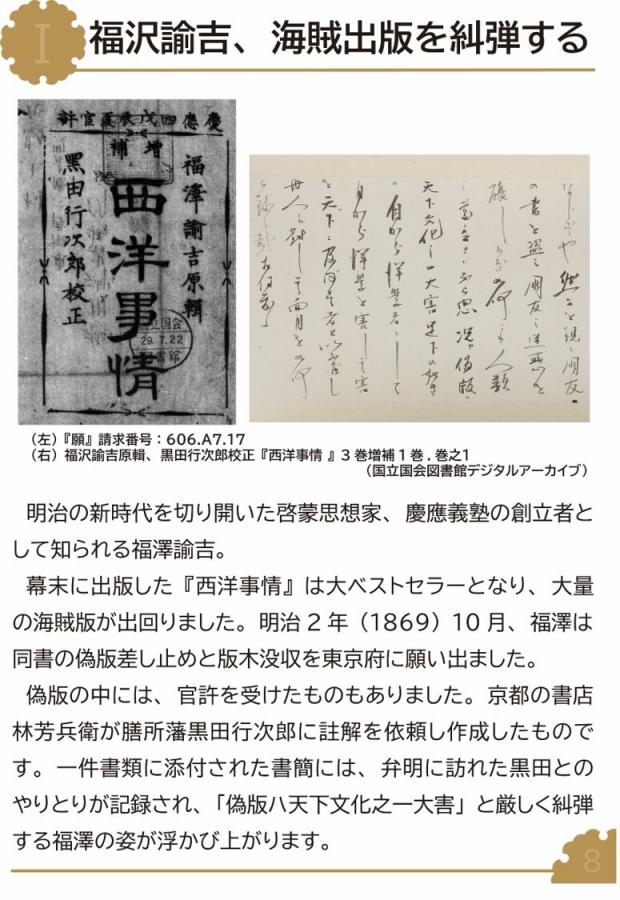 I
福沢諭吉、海賊出版を糾弾する
慶應四戊辰夏官許
増補
福澤諭吉原輯
西洋事情
黒田行次郎校正
国立国会
29.7.22
図書館
の書を盗み朋友に迷惑を
天下文化之一大害
自から洋学者ニして
自から洋学を害し
（左）『願』請求番号：606.A7.17
（右）福沢諭吉原輯、黒田行次郎校正『西洋事情 』3 巻増補 1 巻 . 巻之1
（国立国会図書館デジタルアーカイブ）
明治の新時代を切り開いた啓蒙思想家、慶應義塾の創立者と
して知られる福澤諭吉。
幕末に出版した『西洋事情』は大ベストセラーとなり、大量
の海賊版が出回りました。明治 2 年（1869）10 月、福澤は
同書の偽版差し止めと版木没収を東京府に願い出ました。
偽版の中には、官許を受けたものもありました。京都の書店
林芳兵衛が膳所藩黒田行次郎に註解を依頼し作成したもので
す。一件書類に添付された書簡には、弁明に訪れた黒田との
やりとりが記録され、「偽版ハ天下文化之一大害」と厳しく糾弾
する福澤の姿が浮かび上がります。
8